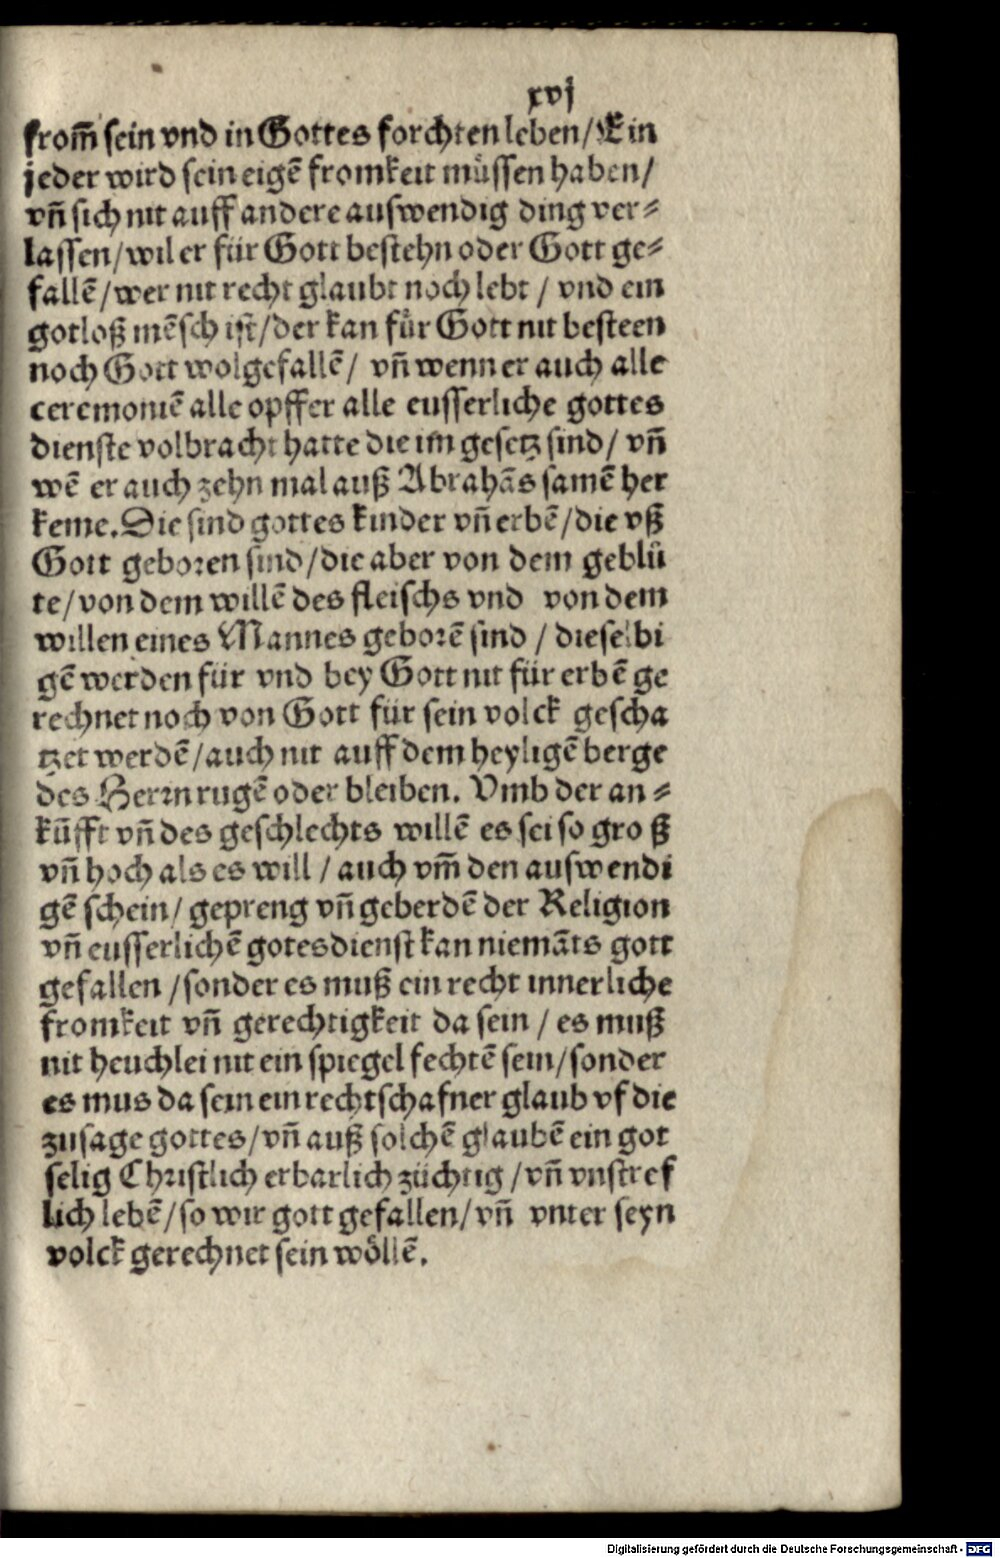 xvj
from̃ sein vnd in Gottes forchten leben/ Ein
jeder wird sein eigē fromkeit müssen haben/
vñ sich nit auff andere auswendig ding ver⸗
lassen/wil er für Gott bestehn oder Gott ge⸗
fallē/wer nit recht glaubt noch lebt / vnd ein
gotloß mēsch ist/der kan für Gott nit besteen
noch Gott wolgefallē/ vñ wenn er auch alle
ceremoniē alle opffer alle eusserliche gottes
dienste volbracht hatte die im gesetz sind/ vñ
wē er auch zehn mal auß Abrahās samē her
keme. Die sind gottes kinder vñ erbē/die vß
Gott geboren sind/die aber von dem geblü
te/von dem willē des fleischs vnd von dem
willen eines Mannes geborē sind / dieselbi
gē werden für vnd bey Gott nit für erbē ge
rechnet noch von Gott für sein volck gescha
tzet werdē/auch nit auff dem heyligē berge
des Herrn rugē oder bleiben. Vmb der an⸗
kūfft vñ des geschlechts willē es sei so groß
vñ hoch als es will / auch vm̃ den auswendi
gē schein/ gepreng vñ geberdē der Religion
vñ eusserlichē gotesdienst kan niemāts gott
gefallen /sonder es muß ein recht innerliche
fromkeit vñ gerechtigkeit da sein / es muß
nit heuchlei nit ein spiegel fechtē sein/sonder
es mus da sein ein rechtschafner glaub vf die
zusage gottes/vñ auß solchē glaubē ein got
selig Christlich erbarlich züchtig /vñ vnstref
lich lebē/so wir gott gefallen/vñ vnter seyn
volck gerechnet sein wöllē.
Digitalisierung gefördert durch die Deutsche Forschungsgemeinschaft - DFG